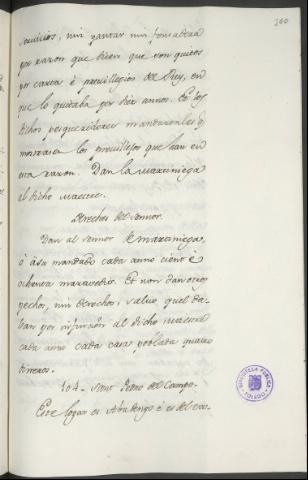 300
servicios, nin yantar nin fonsadera
por razon que dicen que son quitos
por carta é previllegios del Rey, en
que lo quitaba por diez annos. Et los
dichos pesqueridores mandaronles q
mostrasen los previllejos que han en
esta razon. Dan la Martiniega
al dicho Maestre.
Derechos del Sennor.
Dan al sennor de martiniega,
ó á su mandado cada anno cient é
ochenta maravedis. Et non dan otros
pechos, nin derechos, salvo, quel da-
ban por infurcion al dicho Maestre
cada anno cada casa poblada quatro
dineros.
104. Sant Pedro del Campo.
Este logar es Abadengo é es del con-
BIBLIOTECA PUBLICA
TOLEDO